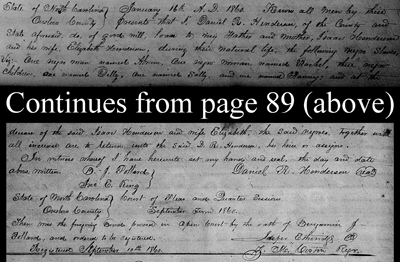 State of North Carolina } January 16th A.D. 1860. Know all Men by these
Craven County } presents that I Daniel R. Henderson, of the County and
State aforesaid, do, of good will, loan to my Father and Mother, Isaac Henderson
and his wife, Elizabeth Henderson, during their Natural life, the following Negro Slaves
viz: One negro man named, One negro woman named Rachel, their negro
children, one named, one named Sally, and one named; and at the
Continues from page 89 (above)
decease of the said Isaac Henderson and wife Elizabeth, the said negroes, together with
all increase are to return unto the said D. R. Henderson, his heirs or assigns.
In witness whereof I have hereunto set my hand and seal, the day and date
above written. B. J. Pollard } Daniel R. Henderson (Seal)
Jno. C. King }
State of North Carolina } Court of Pleas and Quarter Session
County } September Term 1860.
Then was the foregoing proved in Open Court by the oath of Benjamin J.
Pollard, and ordered to be registered.
Registered September 10th 1860.